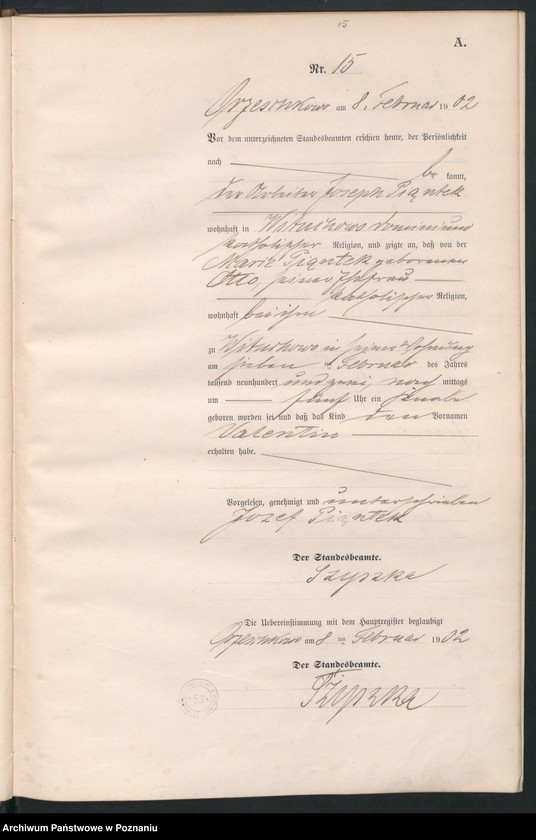 15
A.
Nr. 15
Orzeschkowo am 8. Februar 1902
Vor dem unterzeichneten Standesbeamten erschien heute, der Persönlichkeit
nach be kannt,
der Arbeiter Joseph Piątek
wohnhaft in Wituchowo dominium
katholischer Religion, und zeigte an, daß von der
Marie Piątek geborenen
Otto, seiner Ehefrau
katholischer Religion,
wohnhaft bei ihm
zu Wituchowo in seiner Wohnung
am sieben ten Februar des Jahres
tausend neunhundert und zwei, nach mittags
um fünf Uhr ein Knabe
geboren worden sei und daß das Kind den Vornamen
Valentin
erhalten habe.
Vorgelesen, genehmigt und unterschrieben
Jozef Piątek
Der Standesbeamte.
Szyszka
Die Uebereinstimmung mit dem Hauptregister beglaubigt
Orzeschkowo am 8 ten Februar 1902
Der Standesbeamte.
Szyszka
Archiwum Państwowe w Poznaniu